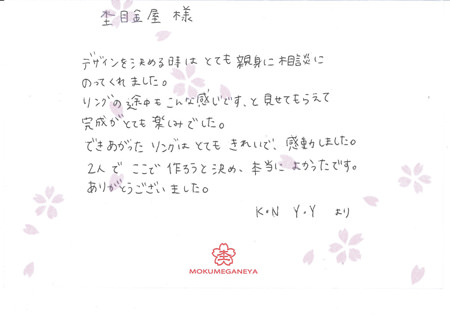 杢目金屋 様
デザインを決める時は とても 親身に 相談に
のってくれました。
リングの 途中も こんな感じです、と 見せてもらえて
完成が とても 楽しみでした。
できあがった リングは とても きれいで、感動しました。
2人で ここで 作ろうと 決め、本当に よかったです。
ありがとうございました。
K・N Y・Y より
MOKUMEGANEYA